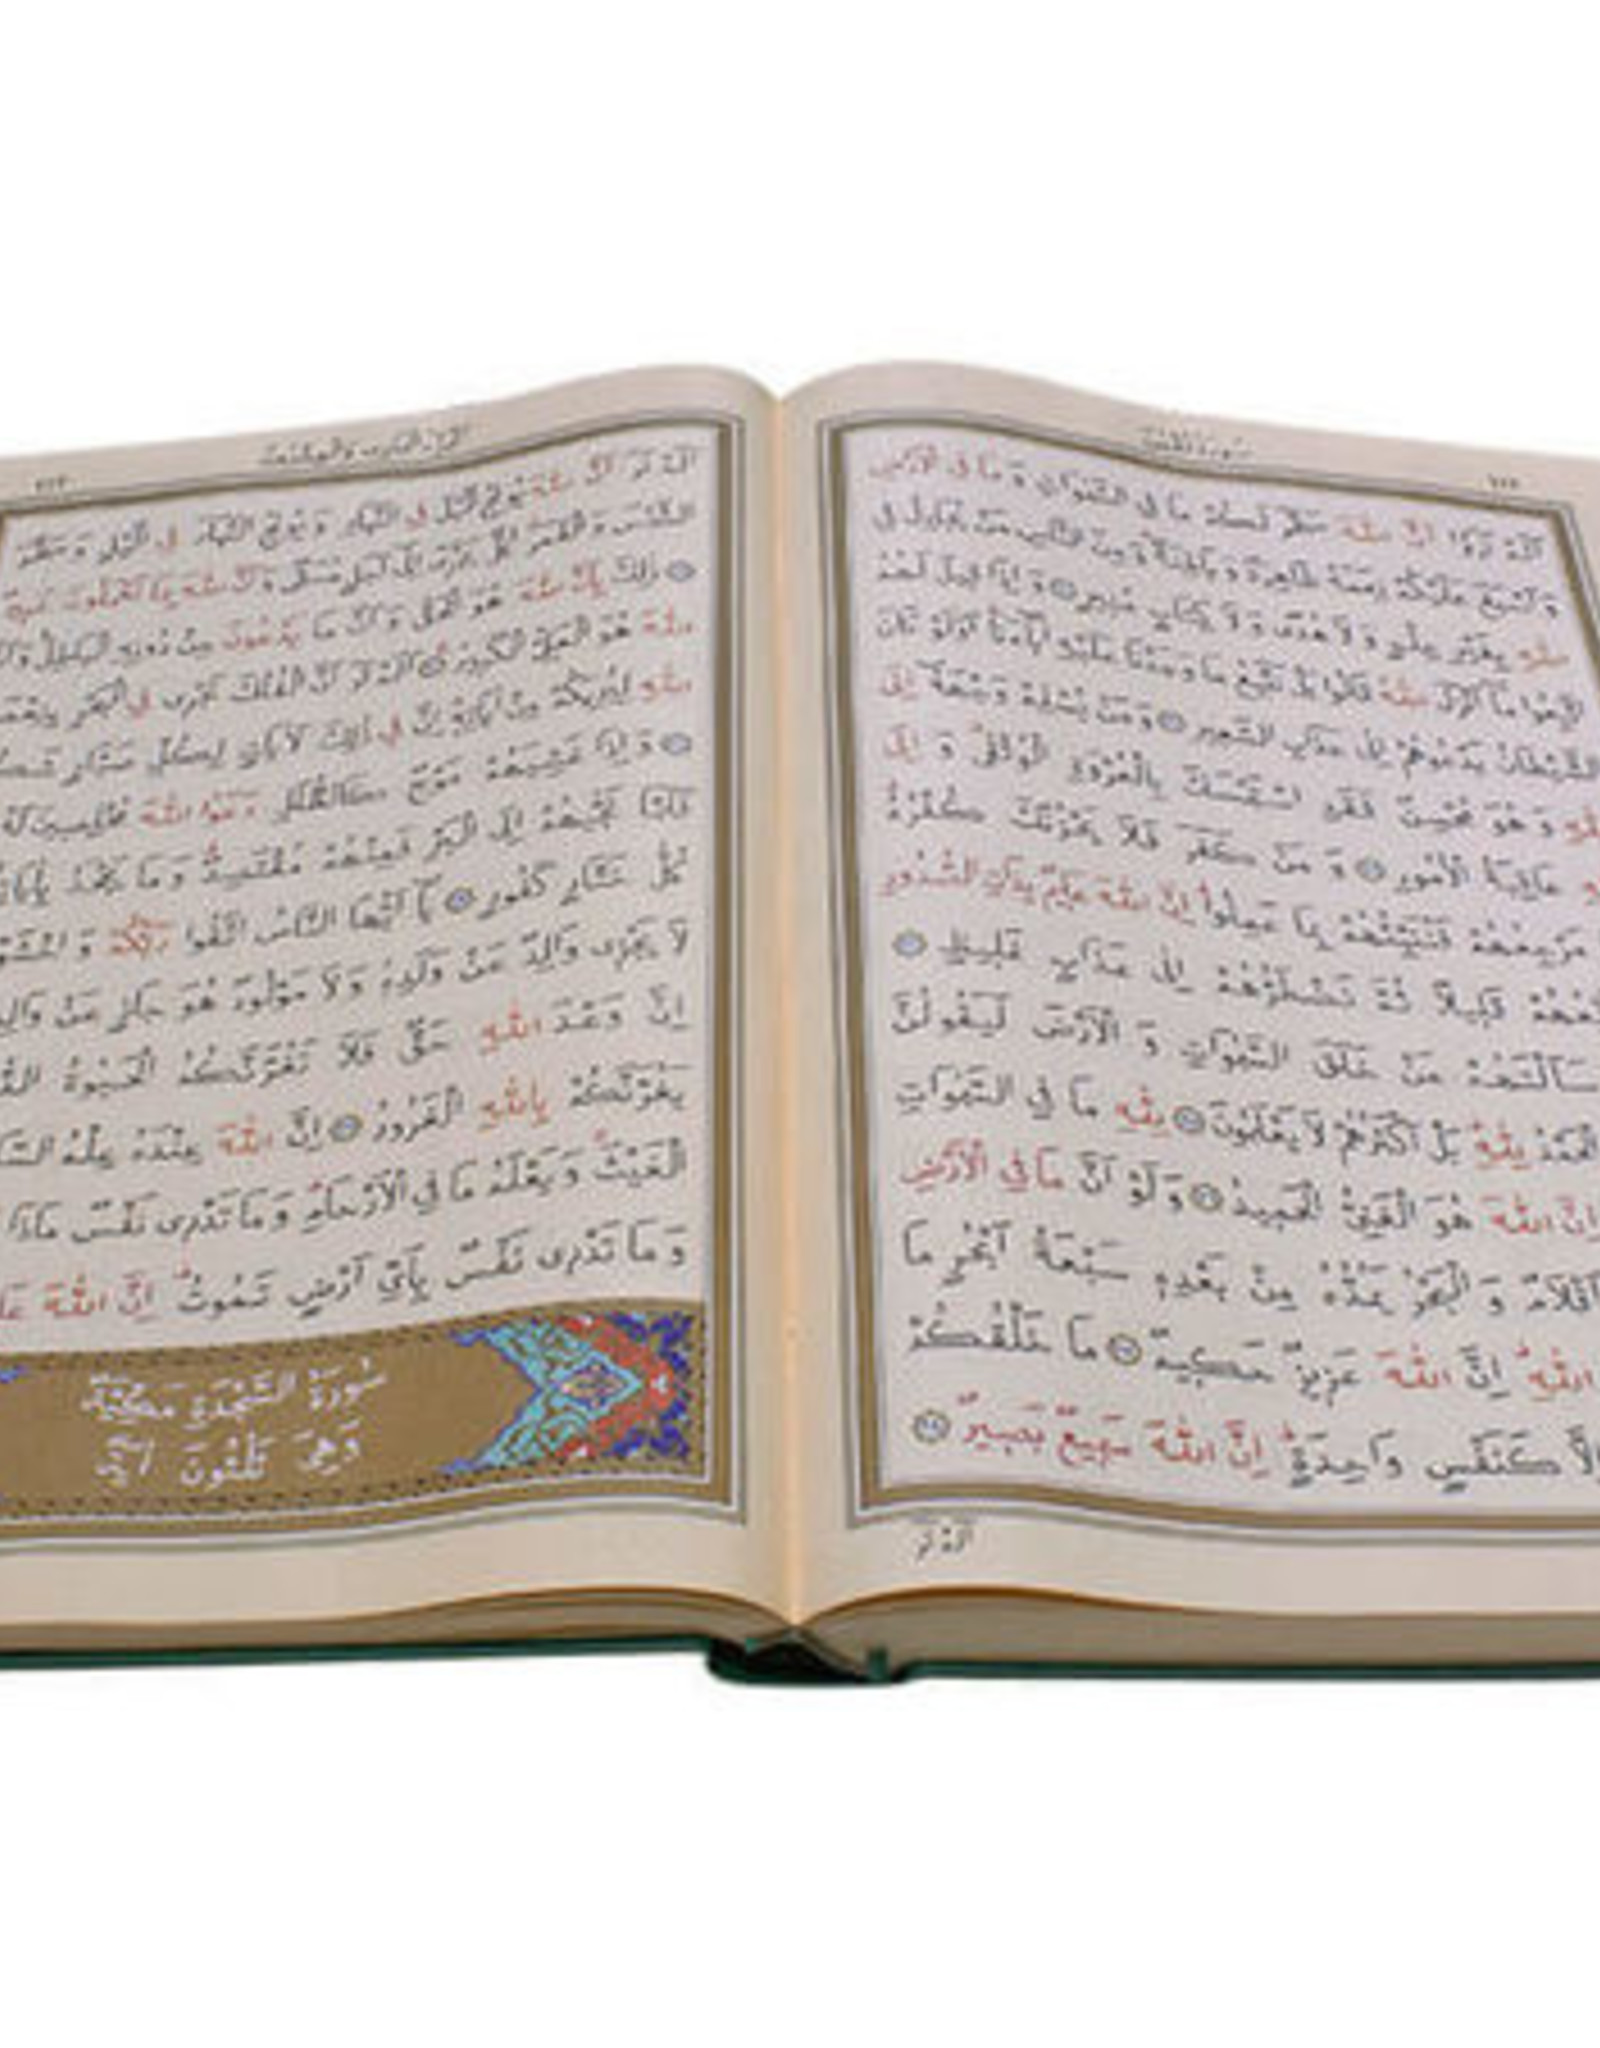 سُورَةُ لُقْمٰنَ
اَلَمْ تَرَوْا اَنَّ اللّٰهَ سَخَّرَ لَكُمْ مَا فِي السَّمٰوَاتِ وَ مَا فِي الْاَرْضِ
وَ اَسْبَغَ عَلَيْكُمْ نِعَمَهُ ظَاهِرَةً وَ بَاطِنَةً وَ مِنَ النَّاسِ مَنْ يُجَادِلُ فِي
اللّٰهِ بِغَيْرِ عِلْمٍ وَ لَا هُدًى وَ لَا كِتَابٍ مُنِيرٍ وَ اِذَا قِيلَ لَهُمُ
اتَّبِعُوا مَا اَنْزَلَ اللّٰهُ قَالُوا بَلْ نَتَّبِعُ مَا وَجَدْنَا عَلَيْهِ اٰبَاءَنَا اَوَلَوْ كَانَ
الشَّيْطَانُ يَدْعُوهُمْ اِلٰى عَذَابِ السَّعِيرِ وَ مَنْ يُسْلِمْ وَجْهَهُ اِلَى
اللّٰهِ وَ هُوَ مُحْسِنٌ فَقَدِ اسْتَمْسَكَ بِالْعُرْوَةِ الْوُثْقٰى وَ اِلَى
عَاقِبَةُ الْاُمُورِ وَ مَنْ كَفَرَ فَلَا يَحْزُنْكَ كُفْرُهُ
مَرْجِعُهُمْ فَنُنَبِّئُهُمْ بِمَا عَمِلُوا اِنَّ اللّٰهَ عَلِيمٌ بِذَاتِ الصُّدُورِ
قَلِيلًا ثُمَّ نَضْطَرُّهُمْ اِلٰى عَذَابٍ غَلِيظٍ
سَاَلْتَهُمْ مَنْ خَلَقَ السَّمٰوَاتِ وَ الْاَرْضَ لَيَقُولُنَّ
الْحَمْدُ لِلّٰهِ بَلْ اَكْثَرُهُمْ لَا يَعْلَمُونَ لِلّٰهِ مَا فِي السَّمٰوَاتِ
اِنَّ اللّٰهَ هُوَ الْغَنِيُّ الْحَمِيدُ وَ لَوْ اَنَّ مَا فِي الْاَرْضِ
اَقْلَامٌ وَ الْبَحْرُ يَمُدُّهُ مِنْ بَعْدِهِ سَبْعَةُ اَبْحُرٍ مَا
اللّٰهِ اِنَّ اللّٰهَ عَزِيزٌ حَكِيمٌ مَا خَلْقُكُمْ
اِلَّا كَنَفْسٍ وَاحِدَةٍ اِنَّ اللّٰهَ سَمِيعٌ بَصِيرٌ
اَلَمْ تَرَ
اَلَمْ تَرَ اَنَّ اللّٰهَ يُولِجُ اللَّيْلَ فِي النَّهَارِ وَ يُولِجُ النَّهَارَ فِي اللَّيْلِ وَ سَخَّرَ
الشَّمْسَ وَ الْقَمَرَ كُلٌّ يَجْرِي اِلٰى اَجَلٍ مُسَمًّى وَ اَنَّ اللّٰهَ بِمَا تَعْمَلُونَ خَبِيرٌ
ذٰلِكَ بِاَنَّ اللّٰهَ هُوَ الْحَقُّ وَ اَنَّ مَا يَدْعُونَ مِنْ دُونِهِ الْبَاطِلُ
اللّٰهَ هُوَ الْعَلِيُّ الْكَبِيرُ اَلَمْ تَرَ اَنَّ الْفُلْكَ تَجْرِي فِي الْبَحْرِ
اللّٰهِ لِيُرِيَكُمْ مِنْ اٰيَاتِهِ اِنَّ فِي ذٰلِكَ لَاٰيَاتٍ لِكُلِّ صَبَّارٍ
وَ اِذَا غَشِيَهُمْ مَوْجٌ كَالظُّلَلِ دَعَوُا اللّٰهَ مُخْلِصِينَ لَهُ
فَلَمَّا نَجّٰيهُمْ اِلَى الْبَرِّ فَمِنْهُمْ مُقْتَصِدٌ وَ مَا يَجْحَدُ
كُلُّ خَتَّارٍ كَفُورٍ يَا اَيُّهَا النَّاسُ اتَّقُوا رَبَّكُمْ
لَا يَجْزِي وَالِدٌ عَنْ وَلَدِهِ وَ لَا مَوْلُودٌ هُوَ جَازٍ عَنْ
اِنَّ وَعْدَ اللّٰهِ حَقٌّ فَلَا تَغُرَّنَّكُمُ الْحَيٰوةُ
يَغُرَّنَّكُمْ بِاللّٰهِ الْغَرُورُ اِنَّ اللّٰهَ عِنْدَهُ عِلْمُ
الْغَيْثَ وَ يَعْلَمُ مَا فِي الْاَرْحَامِ وَ مَا تَدْرِي نَفْسٌ مَاذَا
وَ مَا تَدْرِي نَفْسٌ بِاَيِّ اَرْضٍ تَمُوتُ اِنَّ اللّٰهَ
سُورَةُ السَّجْدَةِ مَكِّيَّةٌ
وَهِيَ ثَلٰثُونَ اٰيَةً